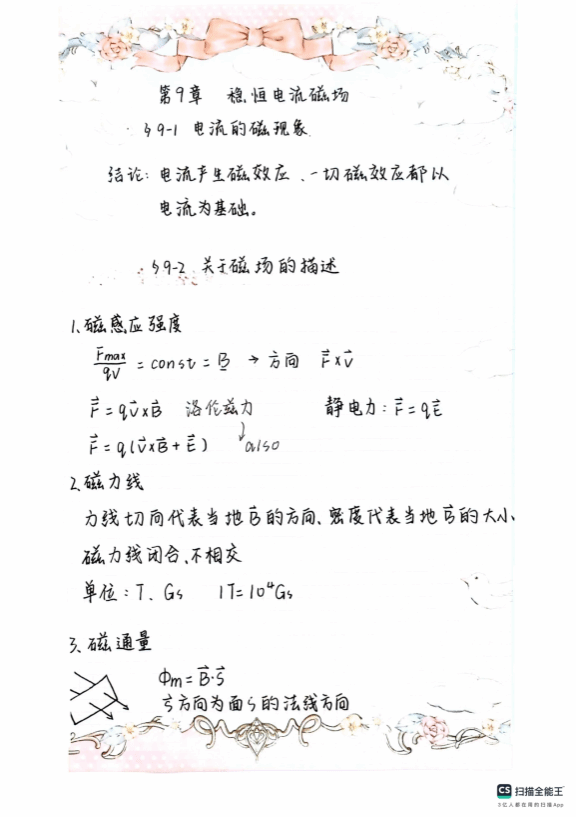 第9章 稳恒电流磁场
§9-1 电流的磁现象
结论: 电流产生磁效应、一切磁效应都以
电流为基础。
§9-2 关于磁场的描述
1、磁感应强度
Fmax/qv = const = B → 方向 F⃗×v⃗
F⃗=qv⃗×B⃗ 洛伦兹力 静电力: F⃗=qE⃗
F⃗=q(v⃗×B⃗+E⃗) also
2、磁力线
力线切向代表当地B⃗的方向、密度代表当地B⃗的大小
磁力线闭合、不相交
单位: T、Gs 1T=10⁴Gs
3、磁通量
Φm=B⃗·S⃗
S⃗方向为面S的法线方向
CS 扫描全能王
3亿人都在用的扫描App